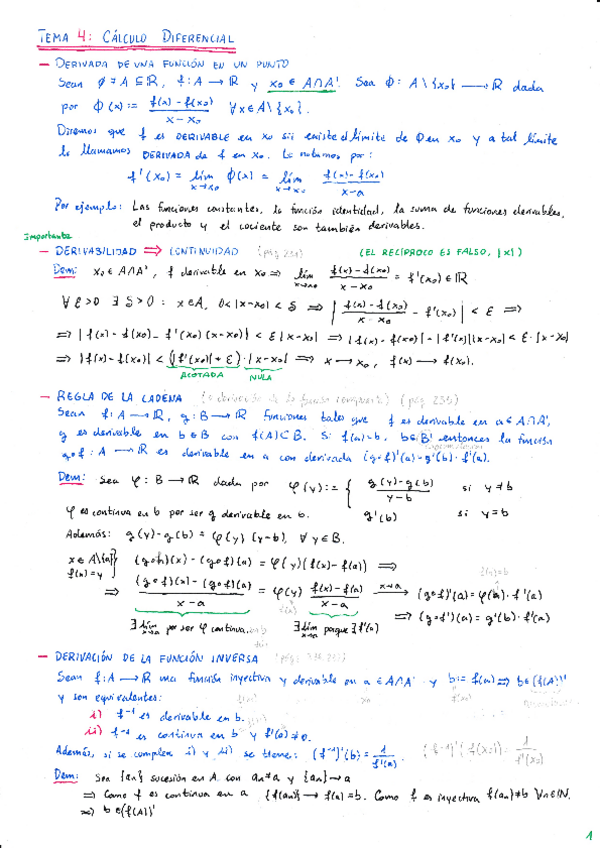 TEMA 4: CÁLCULO DIFERENCIAL
— DERIVADA DE UNA FUNCIÓN EN UN PUNTO
Sean ∅ ≠ A ⊆ ℝ, f: A → ℝ y x₀ ∈ A∩A'. Sea ϕ: A\{x₀} → ℝ dada
por ϕ(x) := (f(x) - f(x₀))/(x - x₀) ∀x ∈ A\{x₀}.
Diremos que f es DERIVABLE en x₀ sii existe el límite de ϕ en x₀ y a tal límite
lo llamamos DERIVADA de f en x₀. Lo notamos por:
f'(x₀) = lím x→x₀ ϕ(x) = lím x→x₀ (f(x) - f(x₀))/(x - a)
Por ejemplo: Las funciones constantes, la función identidad, la suma de funciones derivables,
el producto y el cociente son también derivables.
Importante
— DERIVABILIDAD ⟹ CONTINUIDAD (pág 231) (EL RECÍPROCO ES FALSO, |x|)
Dem: x₀ ∈ A∩A', f derivable en x₀ ⟹ lím x→x₀ (f(x) - f(x₀))/(x - x₀) = f'(x₀) ∈ ℝ
∀ε>0 ∃δ>0 : x∈A, 0<|x-x₀| < δ ⟹ |(f(x) - f(x₀))/(x - x₀) - f'(x₀)| < ε ⟹
⟹ |f(x) - f(x₀) - f'(x₀)(x-x₀)| < ε|x-x₀| ⟹ |f(x) - f(x₀)| - |f'(x₀)||x-x₀| < ε·|x-x₀|
⟹ |f(x) - f(x₀)| < (|f'(x₀)| + ε)·|x-x₀| ⟹ x → x₀, f(x) → f(x₀).
ACOTADA NULA
— REGLA DE LA CADENA (o derivación de la función compuesta) (pág 235)
Sean f: A → ℝ, g: B → ℝ funciones tales que f es derivable en a ∈ A∩A',
g es derivable en b∈B con f(A)⊂B. Si f(a)=b, b∈B' entonces la función
g∘f: A → ℝ es derivable en a con derivada (g∘f)'(a) = g'(b)·f'(a).
Dem: Sea φ: B → ℝ dada por φ(y) := { (g(y) - g(b))/(y - b) si y≠b
φ es continua en b por ser g derivable en b. g'(b) si y=b
Además: g(y) - g(b) = φ(y)(y-b), ∀y∈B.
x∈A\{a} f(x)=y } (g∘f)(x) - (g∘f)(a) = φ(y)(f(x) - f(a)) ⟹
⟹ ((g∘f)(x) - (g∘f)(a))/(x - a) = φ(y) (f(x) - f(a))/(x - a) x→a (g∘f)'(a) = φ(b)·f'(a)
∃ lím x→a por ser φ continua ∃ lím x→a porque ∃ f'(a) ⟹ (g∘f)'(a) = g'(b)·f'(a)
— DERIVACIÓN DE LA FUNCIÓN INVERSA
Sean f: A → ℝ una función inyectiva y derivable en a ∈ A∩A' y b := f(a) ⟹ b∈(f(A))'
y son equivalentes:
i) f⁻¹ es derivable en b.
ii) f⁻¹ es continua en b y f'(a) ≠ 0.
Además, si se cumplen i) y ii) se tiene: (f⁻¹)'(b) = 1/f'(a) (f⁻¹)'(f(x₀)) = 1/f'(x₀)
Dem: Sea {an} sucesión en A con an≠a y {an} → a
⟹ Como f es continua en a {f(an)} → f(a) = b. Como f es inyectiva f(an)≠b ∀n∈ℕ.
⟹ b∈(f(A))'
1